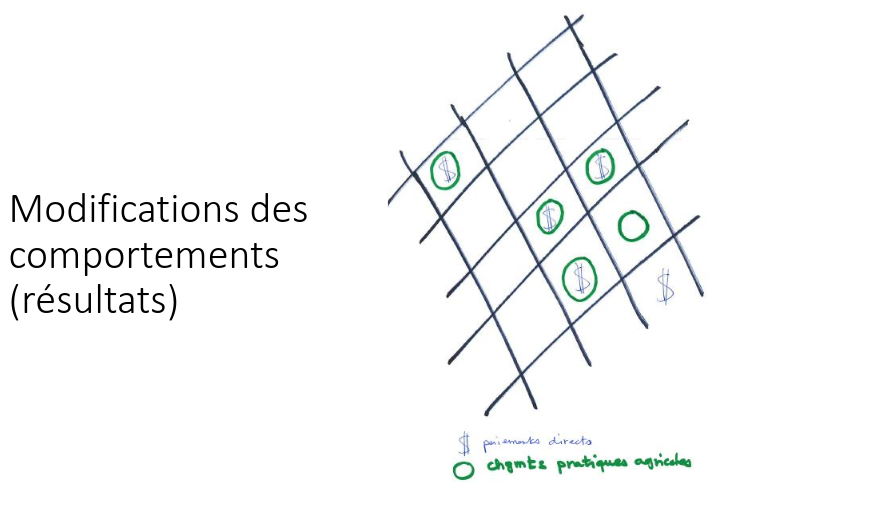 Modifications des
comportements
(résultats)
$
$
$
$
$
$ paiements directs
chgmts pratiques agricoles